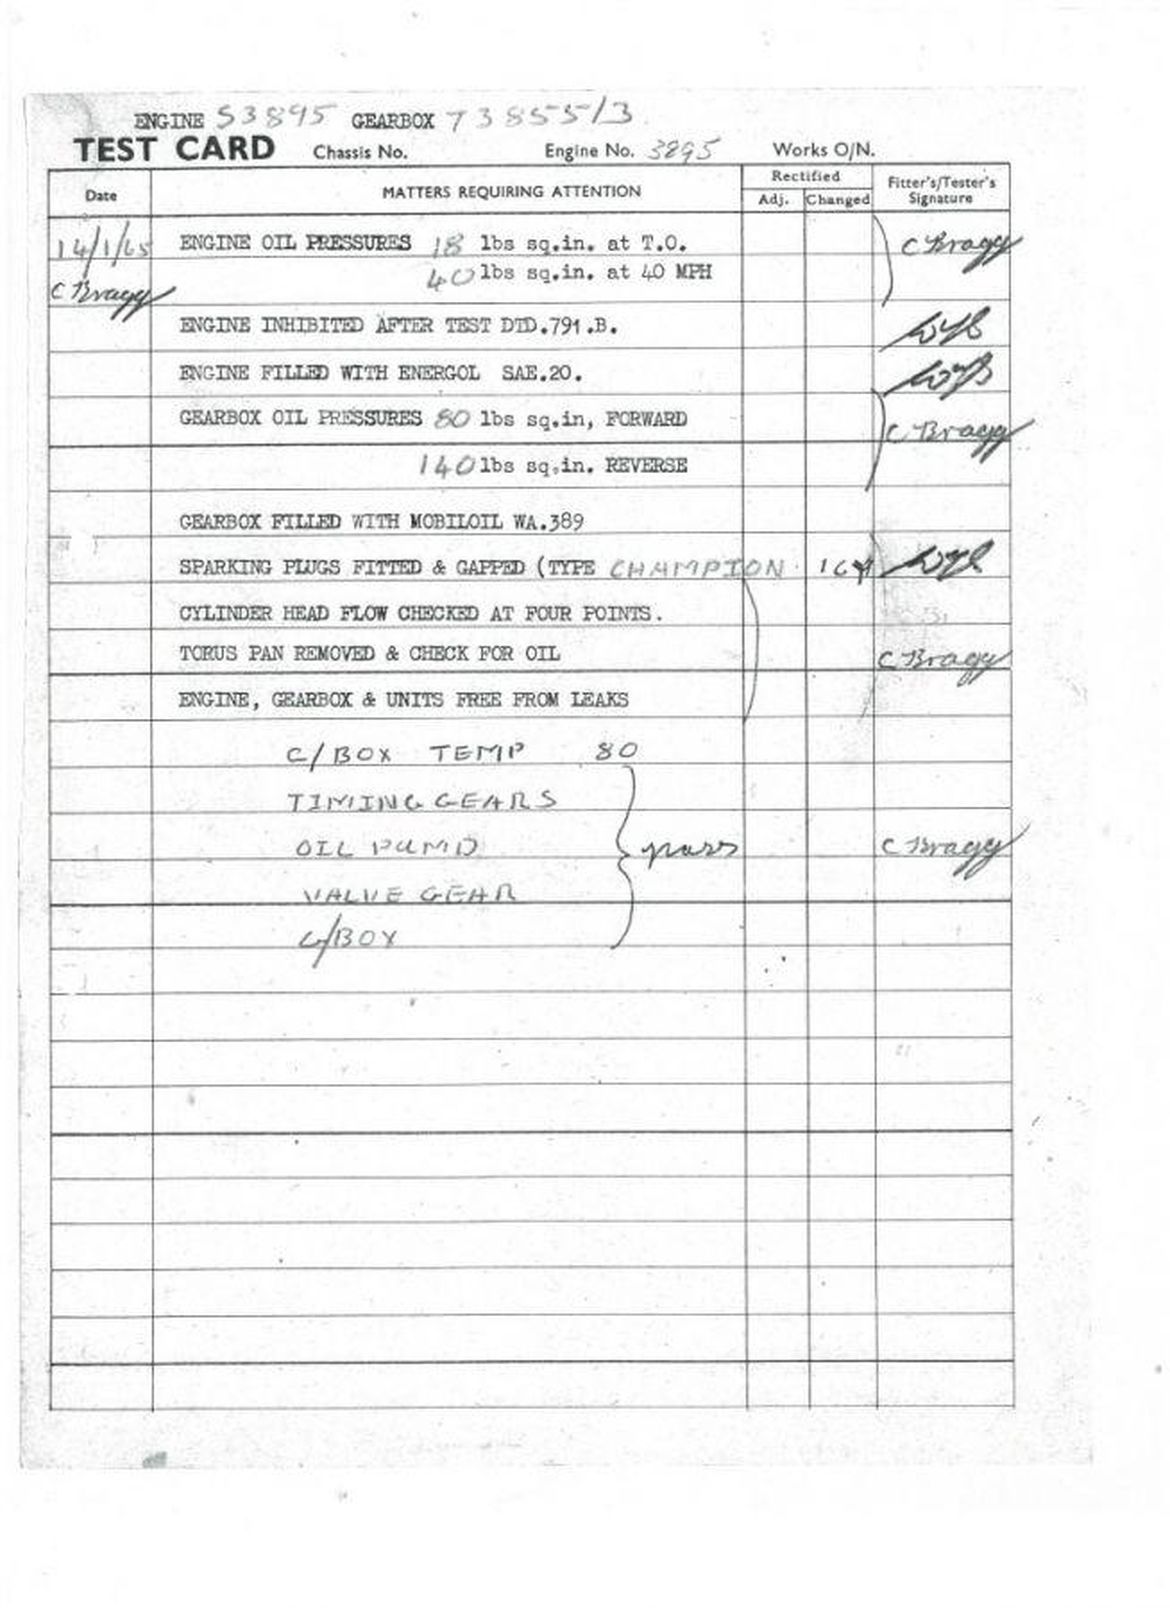 ENGINE 53895 GEARBOX 73855/3
TEST CARD Chassis No. Engine No. 3895 Works O/N.
Date MATTERS REQUIRING ATTENTION Rectified Adj. Changed Fitter's/Tester's Signature
14/1/65 ENGINE OIL PRESSURES 18 lbs sq.in. at T.O. C Bragg
C Bragg 40 lbs sq.in. at 40 MPH
ENGINE INHIBITED AFTER TEST DTD.791.B.
ENGINE FILLED WITH ENERGOL SAE.20.
GEARBOX OIL PRESSURES 80 lbs sq.in, FORWARD C Bragg
140 lbs sq.in. REVERSE
GEARBOX FILLED WITH MOBILOIL WA.389
SPARKING PLUGS FITTED & GAPPED (TYPE CHAMPION
CYLINDER HEAD FLOW CHECKED AT FOUR POINTS.
TORUS PAN REMOVED & CHECK FOR OIL C Bragg
ENGINE, GEARBOX & UNITS FREE FROM LEAKS
C/BOX TEMP 80
TIMING GEARS
OIL PUMP pass C Bragg
VALVE GEAR
G/BOX